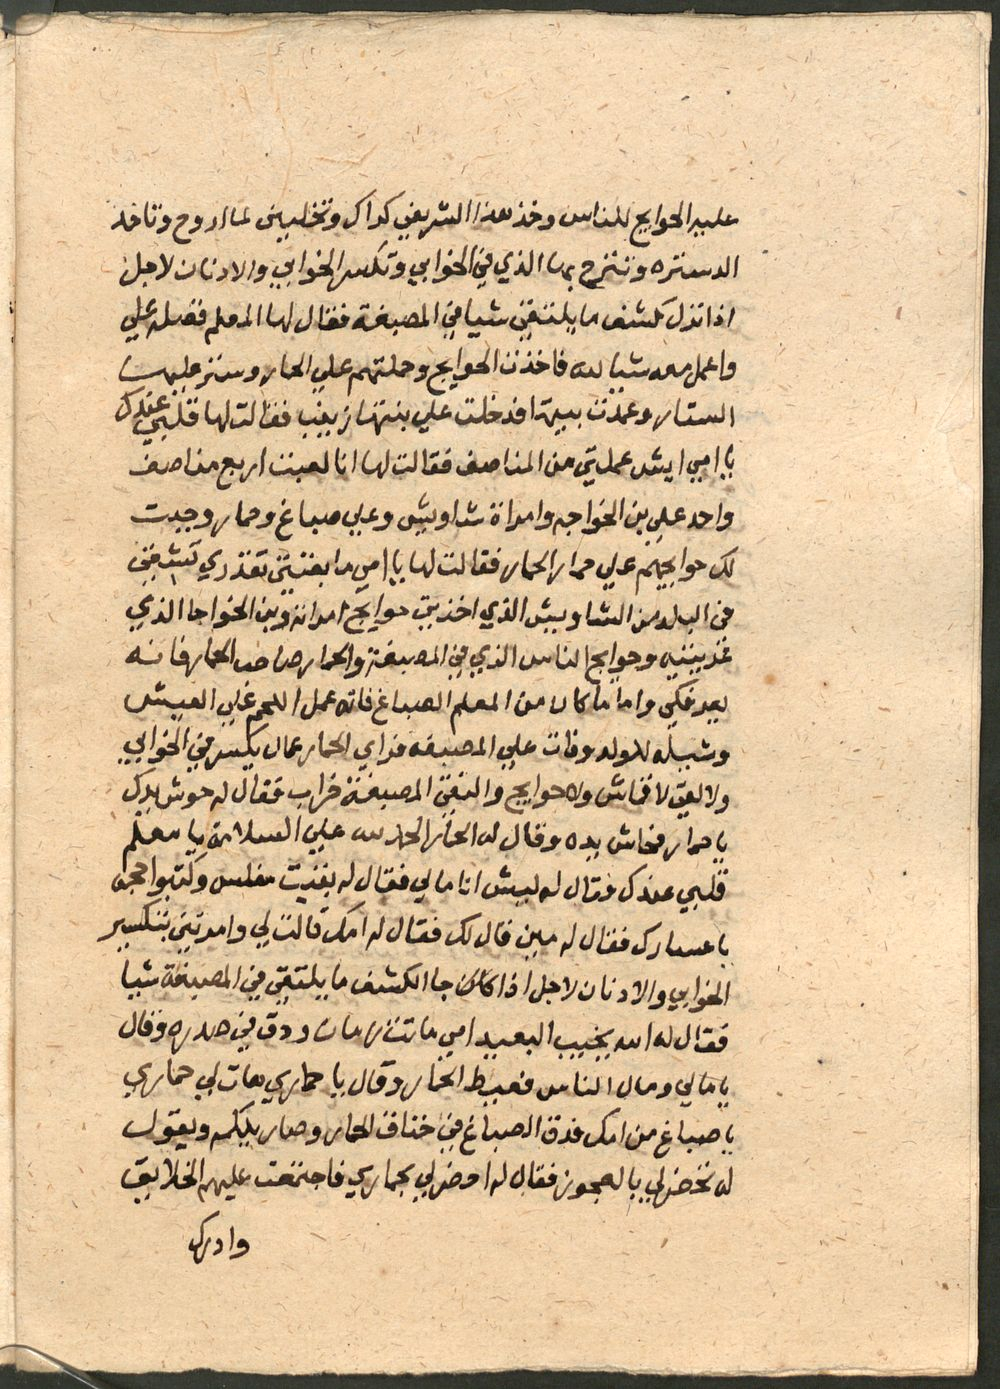 عليه الحوايج للناس وخذ هذا الشريفي كراك وتخليني لما اروح وتاخذ
الدستره وتنزح بها الذي في الخوابي وتكسر الخوابي والادنان لاجل
اذا نزل كشف ما يلتقي شيا في المصبغة فقال لها المعلم فضله علي
واعمل معه شيا لله فاخذت الحوايج وحملتهم علي الحمار وستر عليها
الستار وعمدت بيتها فدخلت علي بنتها زينب فقالت لها قلبي عندك
يا امي ايش عملتي من المناصف فقالت لها انا لعبت اربع مناصف
واحد علي بن الخواجه وامراة شاويش وعلي صباغ وحمار وجيت
لك حوايجهم علي حمار الحمار فقالت لها يا امي ما بقيتي تقدري تشقي
في البلد من الشاويش الذي اخذتي حوايج امراته وبن الخواجا الذي
عريتيه وحوايج الناس الذي في المصبغة والحمار صاحب الحمار فانه
يعرفكي واما ما كان من المعلم الصباغ فانه عمل اللحم علي العيش
وشيله للولد وفات علي المصبغه فراي الحمار عمال يكسر في الخوابي
ولا لقي لا قماش ولا حوايج والتقي المصبغة خراب فقال له حوش يدك
يا حمار فحاش يده وقال له الحمار الحمد لله علي السلامة يا معلم
قلبي عندك فقال له ليش انا مالي فقال له بقيت مفلس وكتبوا حجة
باعسارك فقال له مين قال لك فقال له امك قالت لي وامرتني بتكسير
الخوابي والادنان لاجل اذا كان جا الكشف ما يلتقي في المصبغة شيا
فقال له الله يخيب البعيد امي ماتت من زمان ودق في صدره وقال
يا مالي ومال الناس فعيط الحمار وقال يا حماري هات لي حماري
يا صباغ من امك فدق الصباغ في خناق الحمار وصار يلكم ويقول
له تحضر لي بالعجوز فقال له احضر لي بحماري فاجتمعت عليهم الخلايق
وادرك